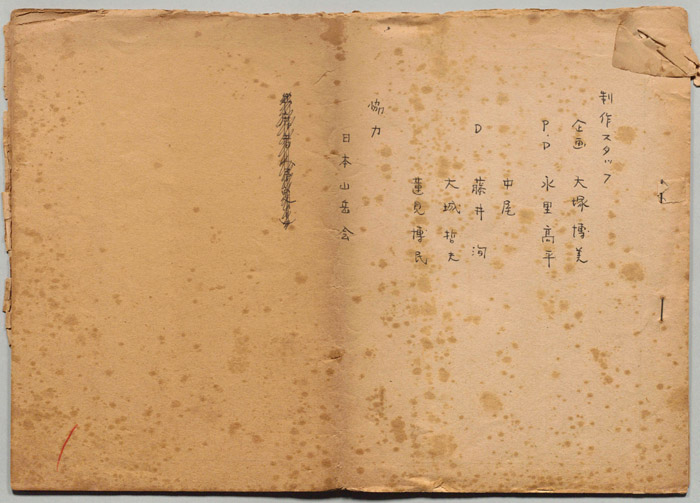 制作スタッフ
企画 大塚博美
P.D 水里高平
中尾
D 藤井洵
大城哲夫
蓮見博民
協力
日本山岳会